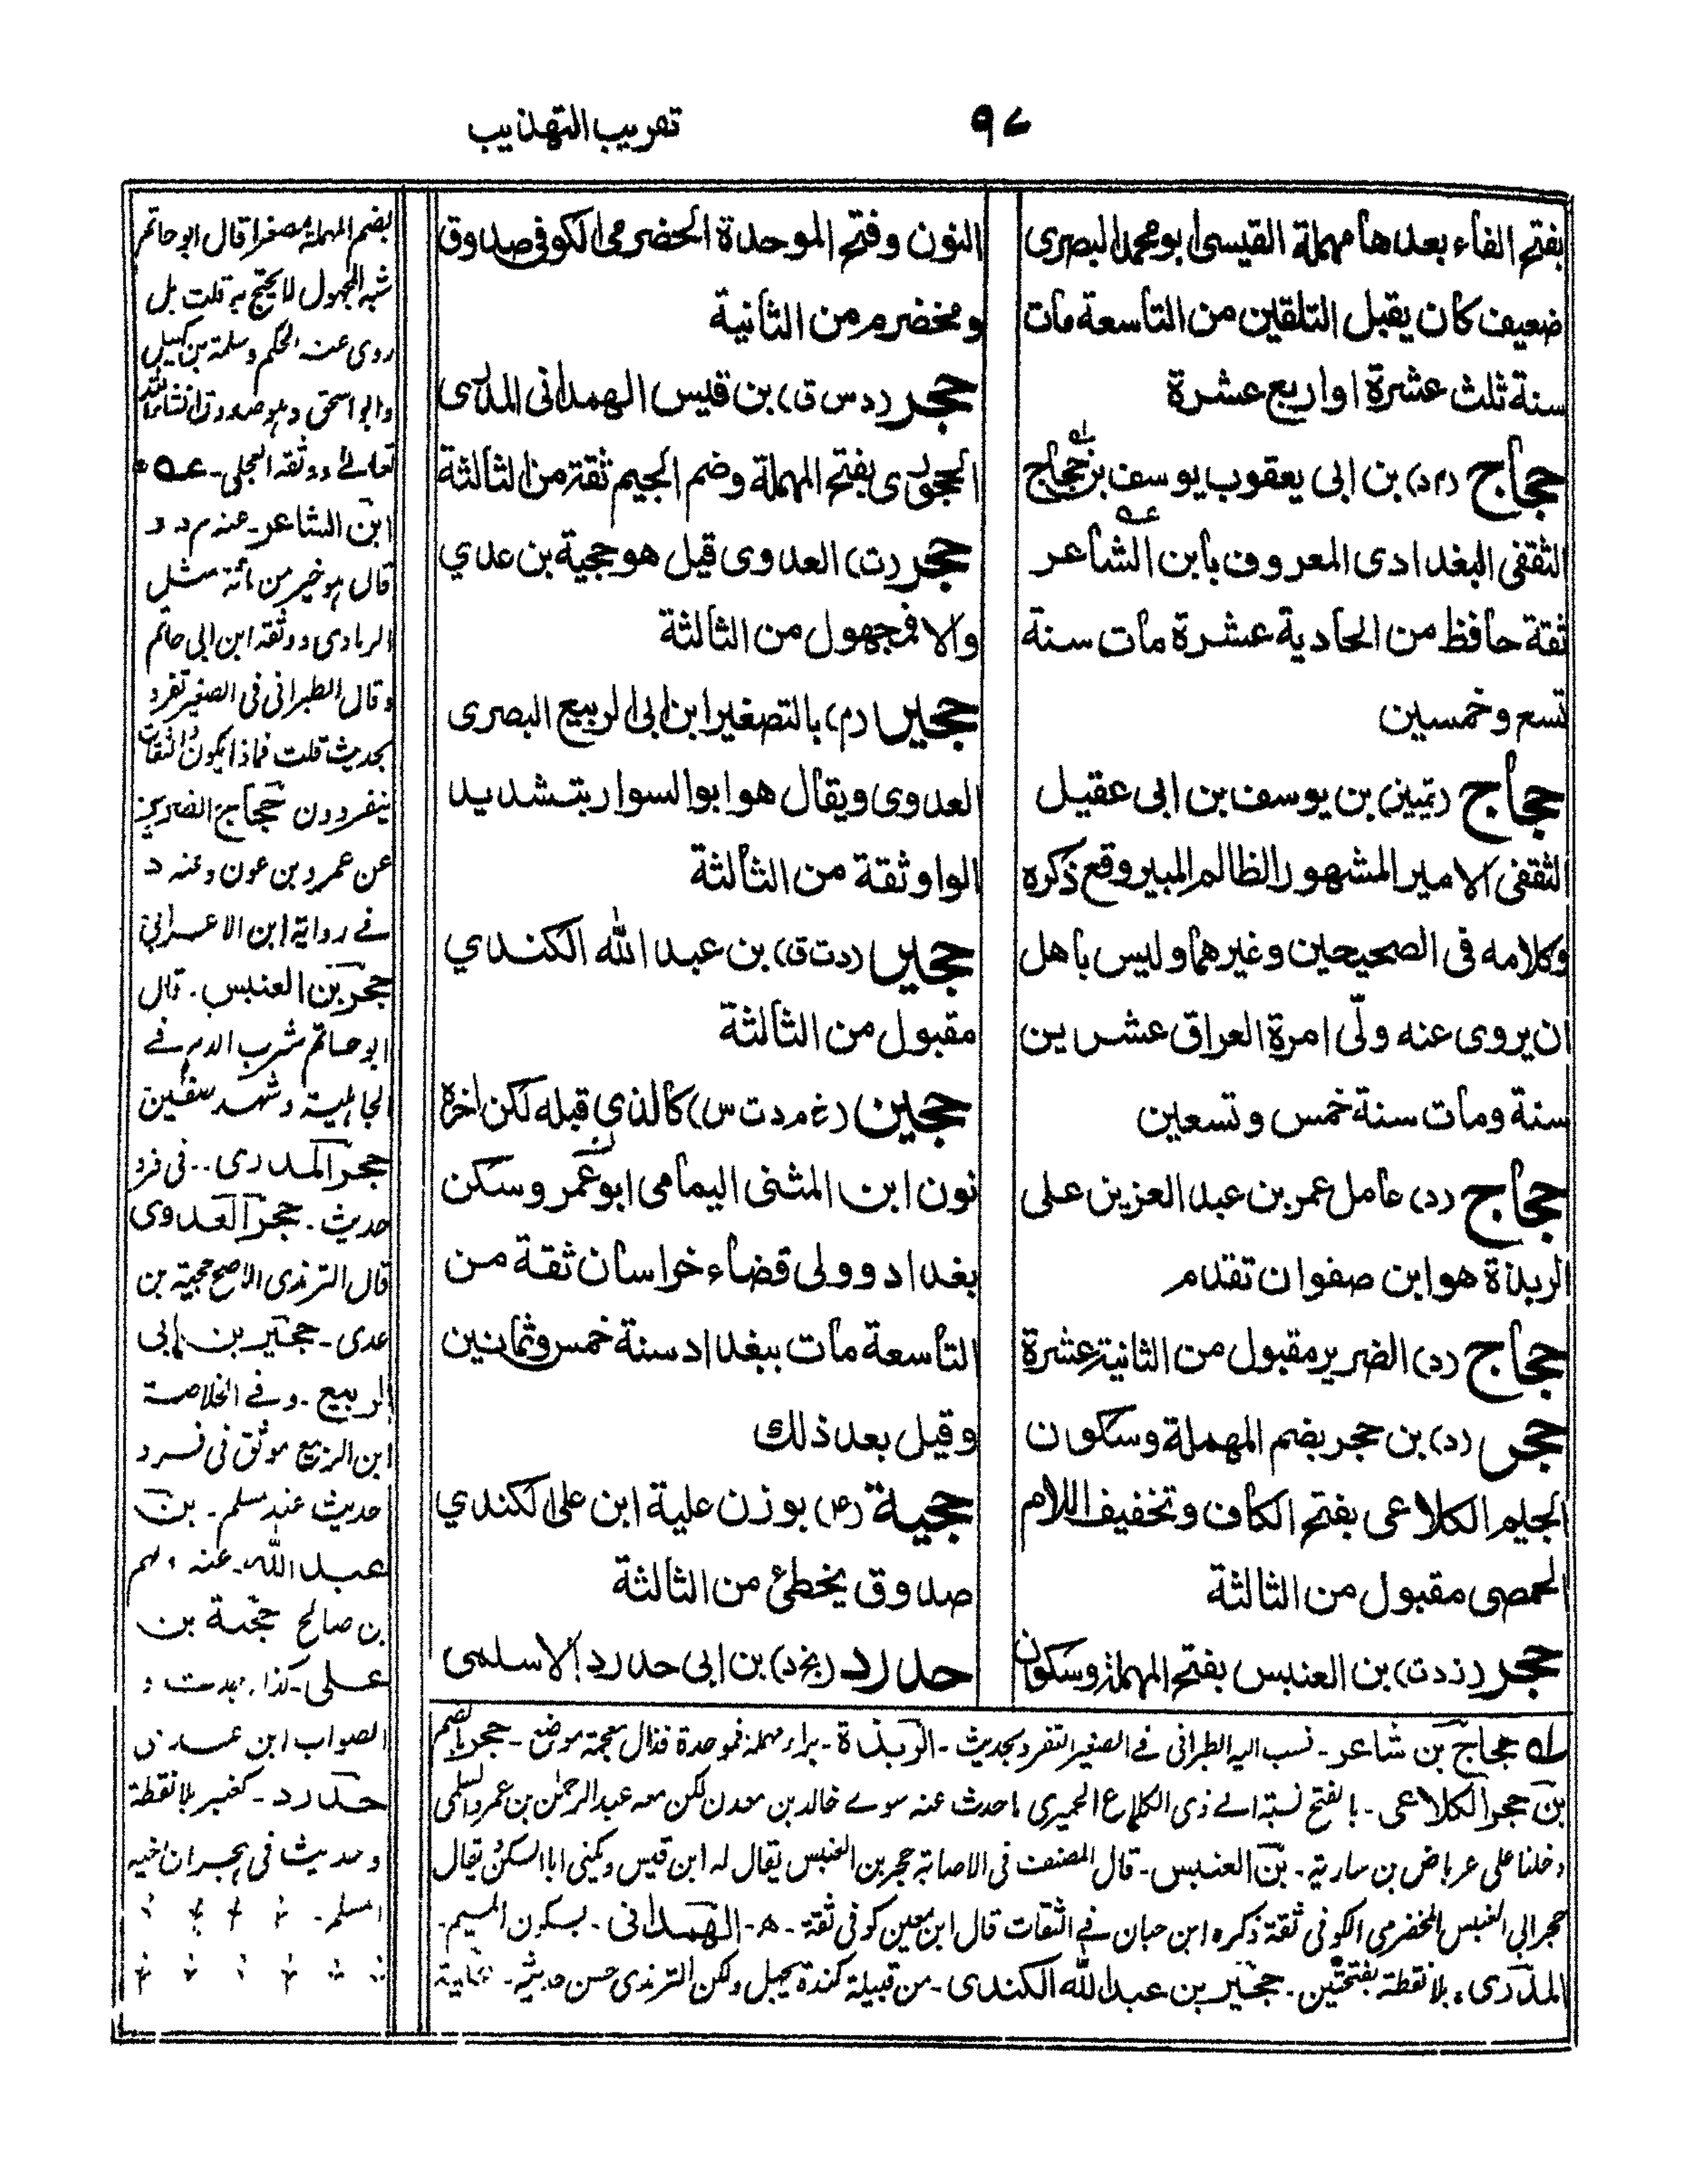 ٩٧
تقريب التهذيب
بفتح الفاء بعدها مهملة القيسى ابو محمد البصرى
ضعيف كان يقبل التلقين من التاسعة مات
سنة ثلث عشرة او اربع عشرة
حجاج (م د) بن ابى يعقوب يوسف بن حجاج
الثقفى البغدادى المعروف بابن الشاعر
ثقة حافظ من الحادية عشرة مات سنة
تسع وخمسين
حجاج (تمييز) بن يوسف بن ابى عقيل
الثقفى الامير المشهور الظالم المبير وقع ذكره
وكلامه فى الصحيحين وغيرهما وليس باهل
ان يروى عنه ولّى امرة العراق عشرين
سنة ومات سنة خمس وتسعين
حجاج (د) عامل عمر بن عبد العزيز على
الربذة هو ابن صفوان تقدم
حجاج (د) الضرير مقبول من الثانية عشرة
حجر (د) بن حجر بضم المهملة وسكون
الجيم الكلاعى بفتح الكاف وتخفيف اللام
الحمصى مقبول من الثالثة
حجر (ز د ت) بن العنبس بفتح المهملة وسكون
النون وفتح الموحدة الحضرمى الكوفى صدوق
ومخضرم من الثانية
حجر (د س ق) بن قيس الهمدانى المدرى
الحجورى بفتح المهملة وضم الجيم ثقة من الثالثة
حجر (ت) العدوى قيل هو حجية بن عدي
والا فمجهول من الثالثة
حجير (م) بالتصغير ابن ابى الربيع البصرى
العدوى ويقال هو ابو السوار بتشديد
الواو ثقة من الثالثة
حجير (د ت ق) بن عبد الله الكندي
مقبول من الثالثة
حجين (خ م د ت س) كالذي قبله لكن اخره
نون ابن المثنى اليمامى ابو عمر وسكن
بغداد وولى قضاء خراسان ثقة من
التاسعة مات ببغداد سنة خمس وثمانين
وقيل بعد ذلك
حجية (ص) بوزن علية ابن على الكندي
صدوق يخطئ من الثالثة
حدرد (بخ د) بن ابى حدرد الاسلمى
بضم المهملة مصغرا قال ابو حاتم
شبه المجهول لا يحتج به قلت بل
روى عنه الحكم وسلمة بن كهيل
وابو اسحق وهو صدوق انشاءالله
تعالى ووثقه العجلى - عه
ابن الشاعر - عنه م د و
قال هو خير من مائة مثل
الرمادى ووثقه ابن ابى حاتم
وقال الطبرانى فى الصغير تفرد
بحديث قلت فماذا يكون الثقات
ينفردون حجاج الضرير
عن عمرو بن عون وعنه د
فے رواية ابن الاعرابى
حجر بن العنبس - قال
ابو حاتم شرب الدم فے
الجاهلية وشهد صفين
حجر المدرى - فى فرد
حديث - حجر العدوى
قال الترمذى الاصح حجية بن
عدى - حجير بن ابى
الربيع - وفے الخلاصة
ابن الربيع موثق فى فرد
حديث عند مسلم - بن
عبد الله - عنه
بن صالح حجية بن
على - كذا و
الصواب ابن عدى
حدرد - كجعفر بلا نقطة
وحديث فى هجران اخيه
المسلم -
له حجاج بن شاعر - نسب اليه الطبرانى فے الصغير التفرد بحديث - الربذة - براء مهملة فموحدة فذال معجمة موضع - حجر بالضم
بن حجر الكلاعى - بالفتح نسبة الے ذى الكلاع الحميرى ما حدث عنه سوے خالد بن معدان لكن معه عبد الرحمن بن عمرو السلمى
دخلنا على عرباض بن سارية - بن العنبس - قال المصنف فى الاصابة حجر بن العنبس يقال له ابن قيس ويكنى ابا السكن يقال
حجر ابى العنبس الحضرمى الكوفى ثقة ذكره ابن حبان فے الثقات قال ابن معين كوفى ثقة - ه - الهمدانى - بسكون الميم -
المدرى - بلا نقطة بفتحتين - حجير بن عبد الله الكندى - من قبيلة كندة يجهل ولكن الترمذى حسن حديثه -